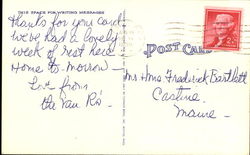 THIS SPACE FOR WRITING MESSAGES
Thanks for you card
We've had a lovely
week of rest here
Home to-morrow
Love from
the Van R's
POST CARD
Mr & Mrs Frederick Bartlett
Castine
Maine